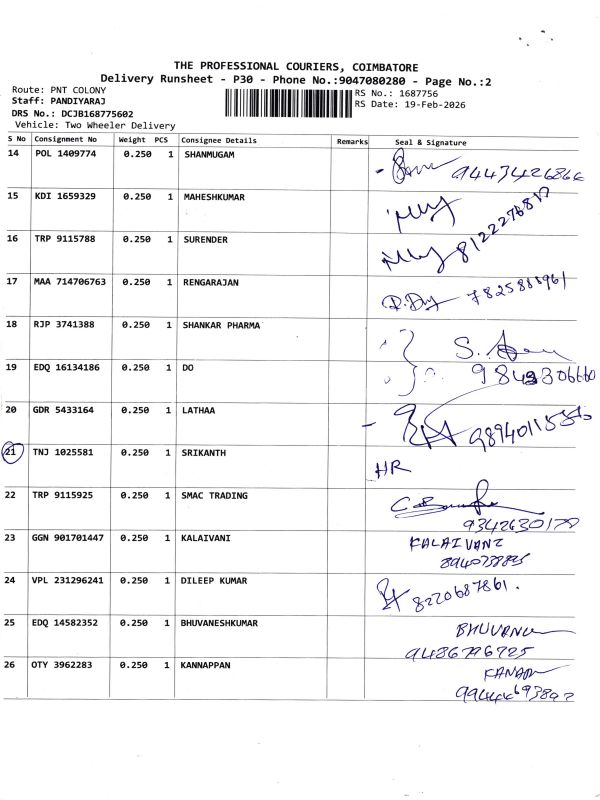 THE PROFESSIONAL COURIERS, COIMBATORE
Delivery Runsheet - P30 - Phone No.:9047080280 - Page No.:2
Route: PNT COLONY
Staff: PANDIYARAJ
DRS No.: DCJB168775602
Vehicle: Two Wheeler Delivery
RS No.: 1687756
RS Date: 19-Feb-2026
S No Consignment No Weight PCS Consignee Details Remarks Seal & Signature
14 POL 1409774 0.250 1 SHANMUGAM
9443426866
15 KDI 1659329 0.250 1 MAHESHKUMAR
16 TRP 9115788 0.250 1 SURENDER
17 MAA 714706763 0.250 1 RENGARAJAN
18 RJP 3741388 0.250 1 SHANKAR PHARMA
19 EDQ 16134186 0.250 1 DO
20 GDR 5433164 0.250 1 LATHAA
21 TNJ 1025581 0.250 1 SRIKANTH
HR
22 TRP 9115925 0.250 1 SMAC TRADING
9342630178
23 GGN 901701447 0.250 1 KALAIVANI
KALAIVANI
24 VPL 231296241 0.250 1 DILEEP KUMAR
8220687861.
25 EDQ 14582352 0.250 1 BHUVANESHKUMAR
9486796725
26 OTY 3962283 0.250 1 KANNAPPAN